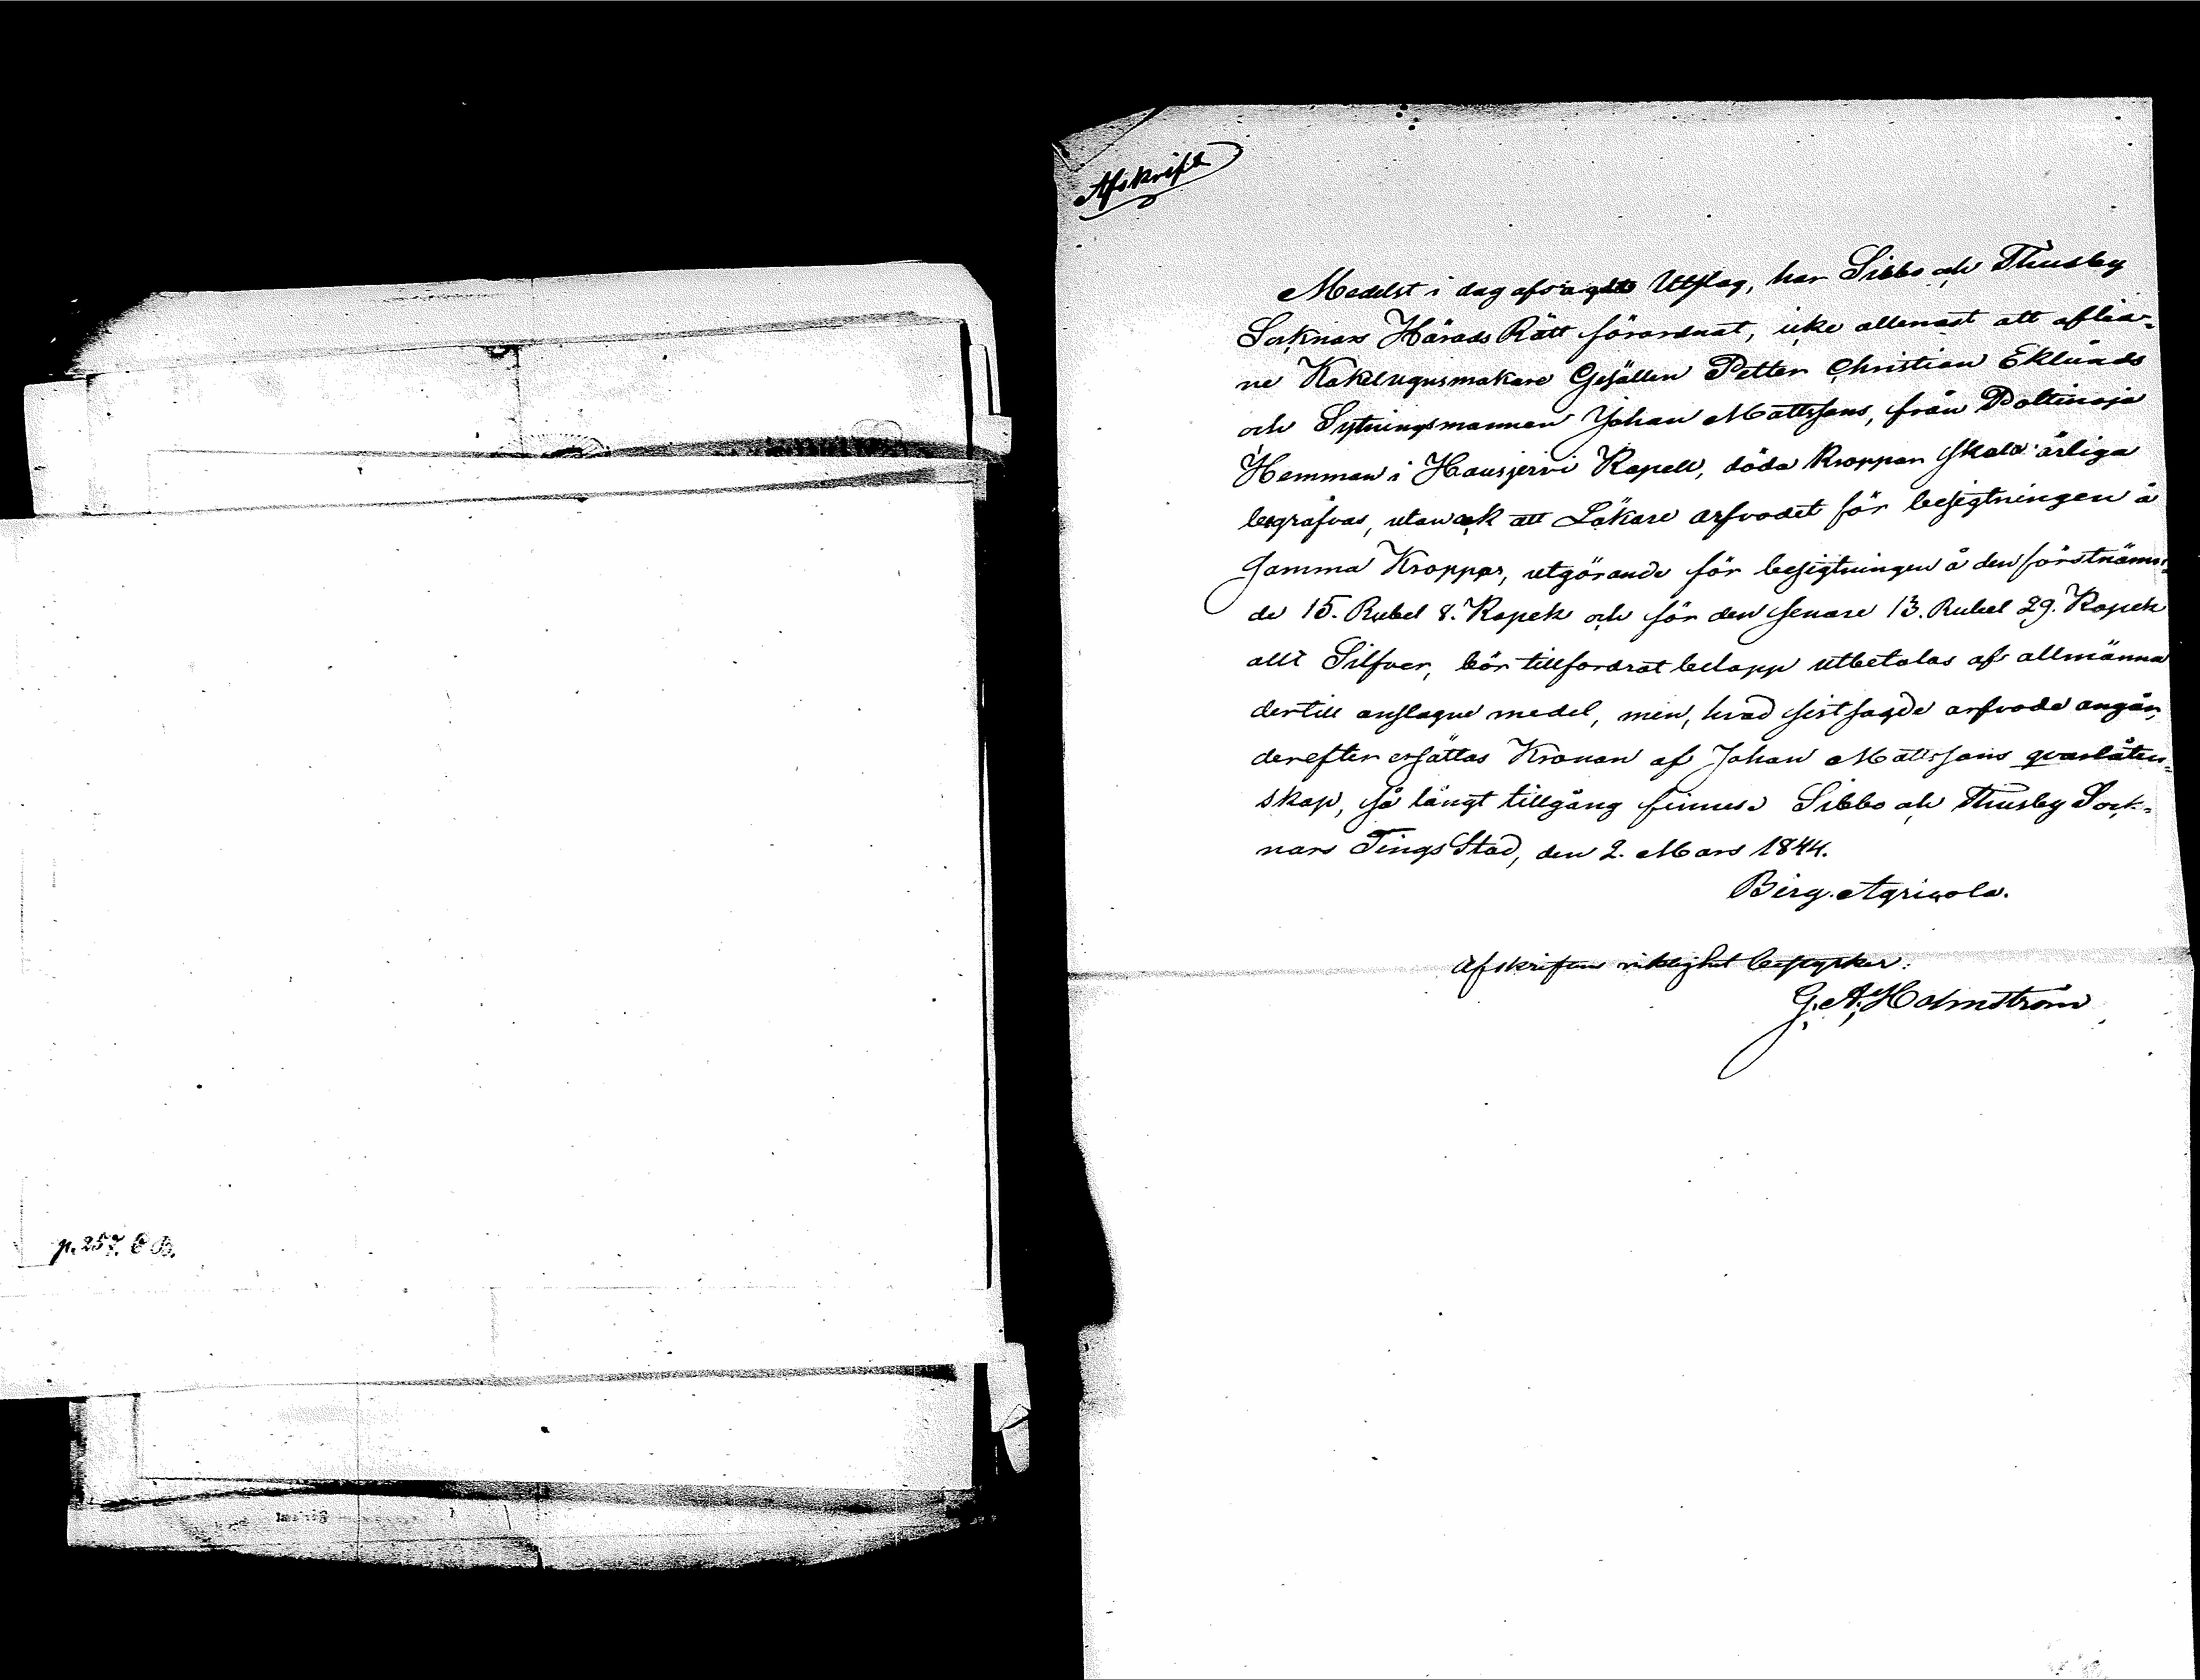 p. 257. C B.
Afskrift
Medelst i dag afsagdt Utslag, har Sibbo och Thusby
Socknars Härads Rätt förordnat, icke allenast att aflid-
ne Kakelugnsmakare Gesällen Petter Christian Eklunds
och Sytningsmannen Johan Mattssons, från Poltinoja
Hemman i Hausjervi Kapell, döda kroppar skola ärliga
begrafvas, utan ock att Läkare arfvodet för besigtningen å
samma Kroppar, utgörande för besigtningen å den förstnämn-
de 15. Rubel 8. Kopek och för den senare 13. Rubel 29. Kopek
allt Silfver, bör tillfordrat belopp utbetalas af allmänna
dertill anslagne medel, men, hvad sistsagde arfvode angår,
derefter ersättas Kronan af Johan Mattssons qvarlåten-
skap, så långt tillgång finnes. Sibbo och Thusby Sock-
nars Tings Stad, den 2. Mars 1844.
Birg. Agricola.
Afskriftens riktighet bestyrker:
G. A. Holmström